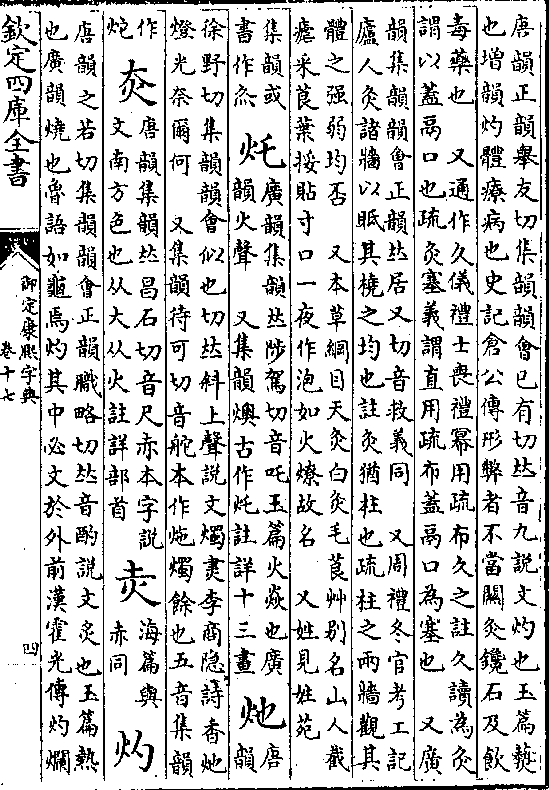 唐韻正韻舉友切集韻韻會已有切𠀤音九說文灼也玉篇爇
也增韻灼體療病也史記倉公傳形弊者不當關灸鑱石及飲
毒藥也 又通作久儀禮士喪禮冪用疏布久之註久讀為灸
謂以蓋鬲口也疏灸塞義謂直用疏布蓋鬲口為塞也 又廣
韻集韻韻會正韻𠀤居又切音救義同 又周禮冬官考工記
廬人灸諸牆以眡其橈之均也註灸猶柱也疏柱之兩牆觀其
體之强弱均否 又本草綱目天灸白灸毛茛艸别名山人截
瘧采茛葉挼貼寸口一夜作泡如火燎故名 又姓見姓苑
集韻或
書作
灹
廣韻集韻𠀤陟駕切音吒玉篇火焱也廣
韻火聲 又集韻燠古作灹註詳十三畫
灺
唐
韻
徐野切集韻韻會似也切𠀤斜上聲說文燭㶳李商隐詩香灺
燈光奈爾何 又集韻待可切音舵本作炧燭餘也五音集韻
作
炧
灻
唐韻集韻𠀤昌石切音尺赤本字說
文南方色也从大从火註詳部首
海篇與
赤同
灼
唐韻之若切集韻韻會正韻職略切𠀤音酌說文炙也玉篇熱
也廣韻燒也魯語如龜焉灼其中必文於外前漢霍光傳灼爛
欽定四庫全書
御定康熙字典
卷十七
四